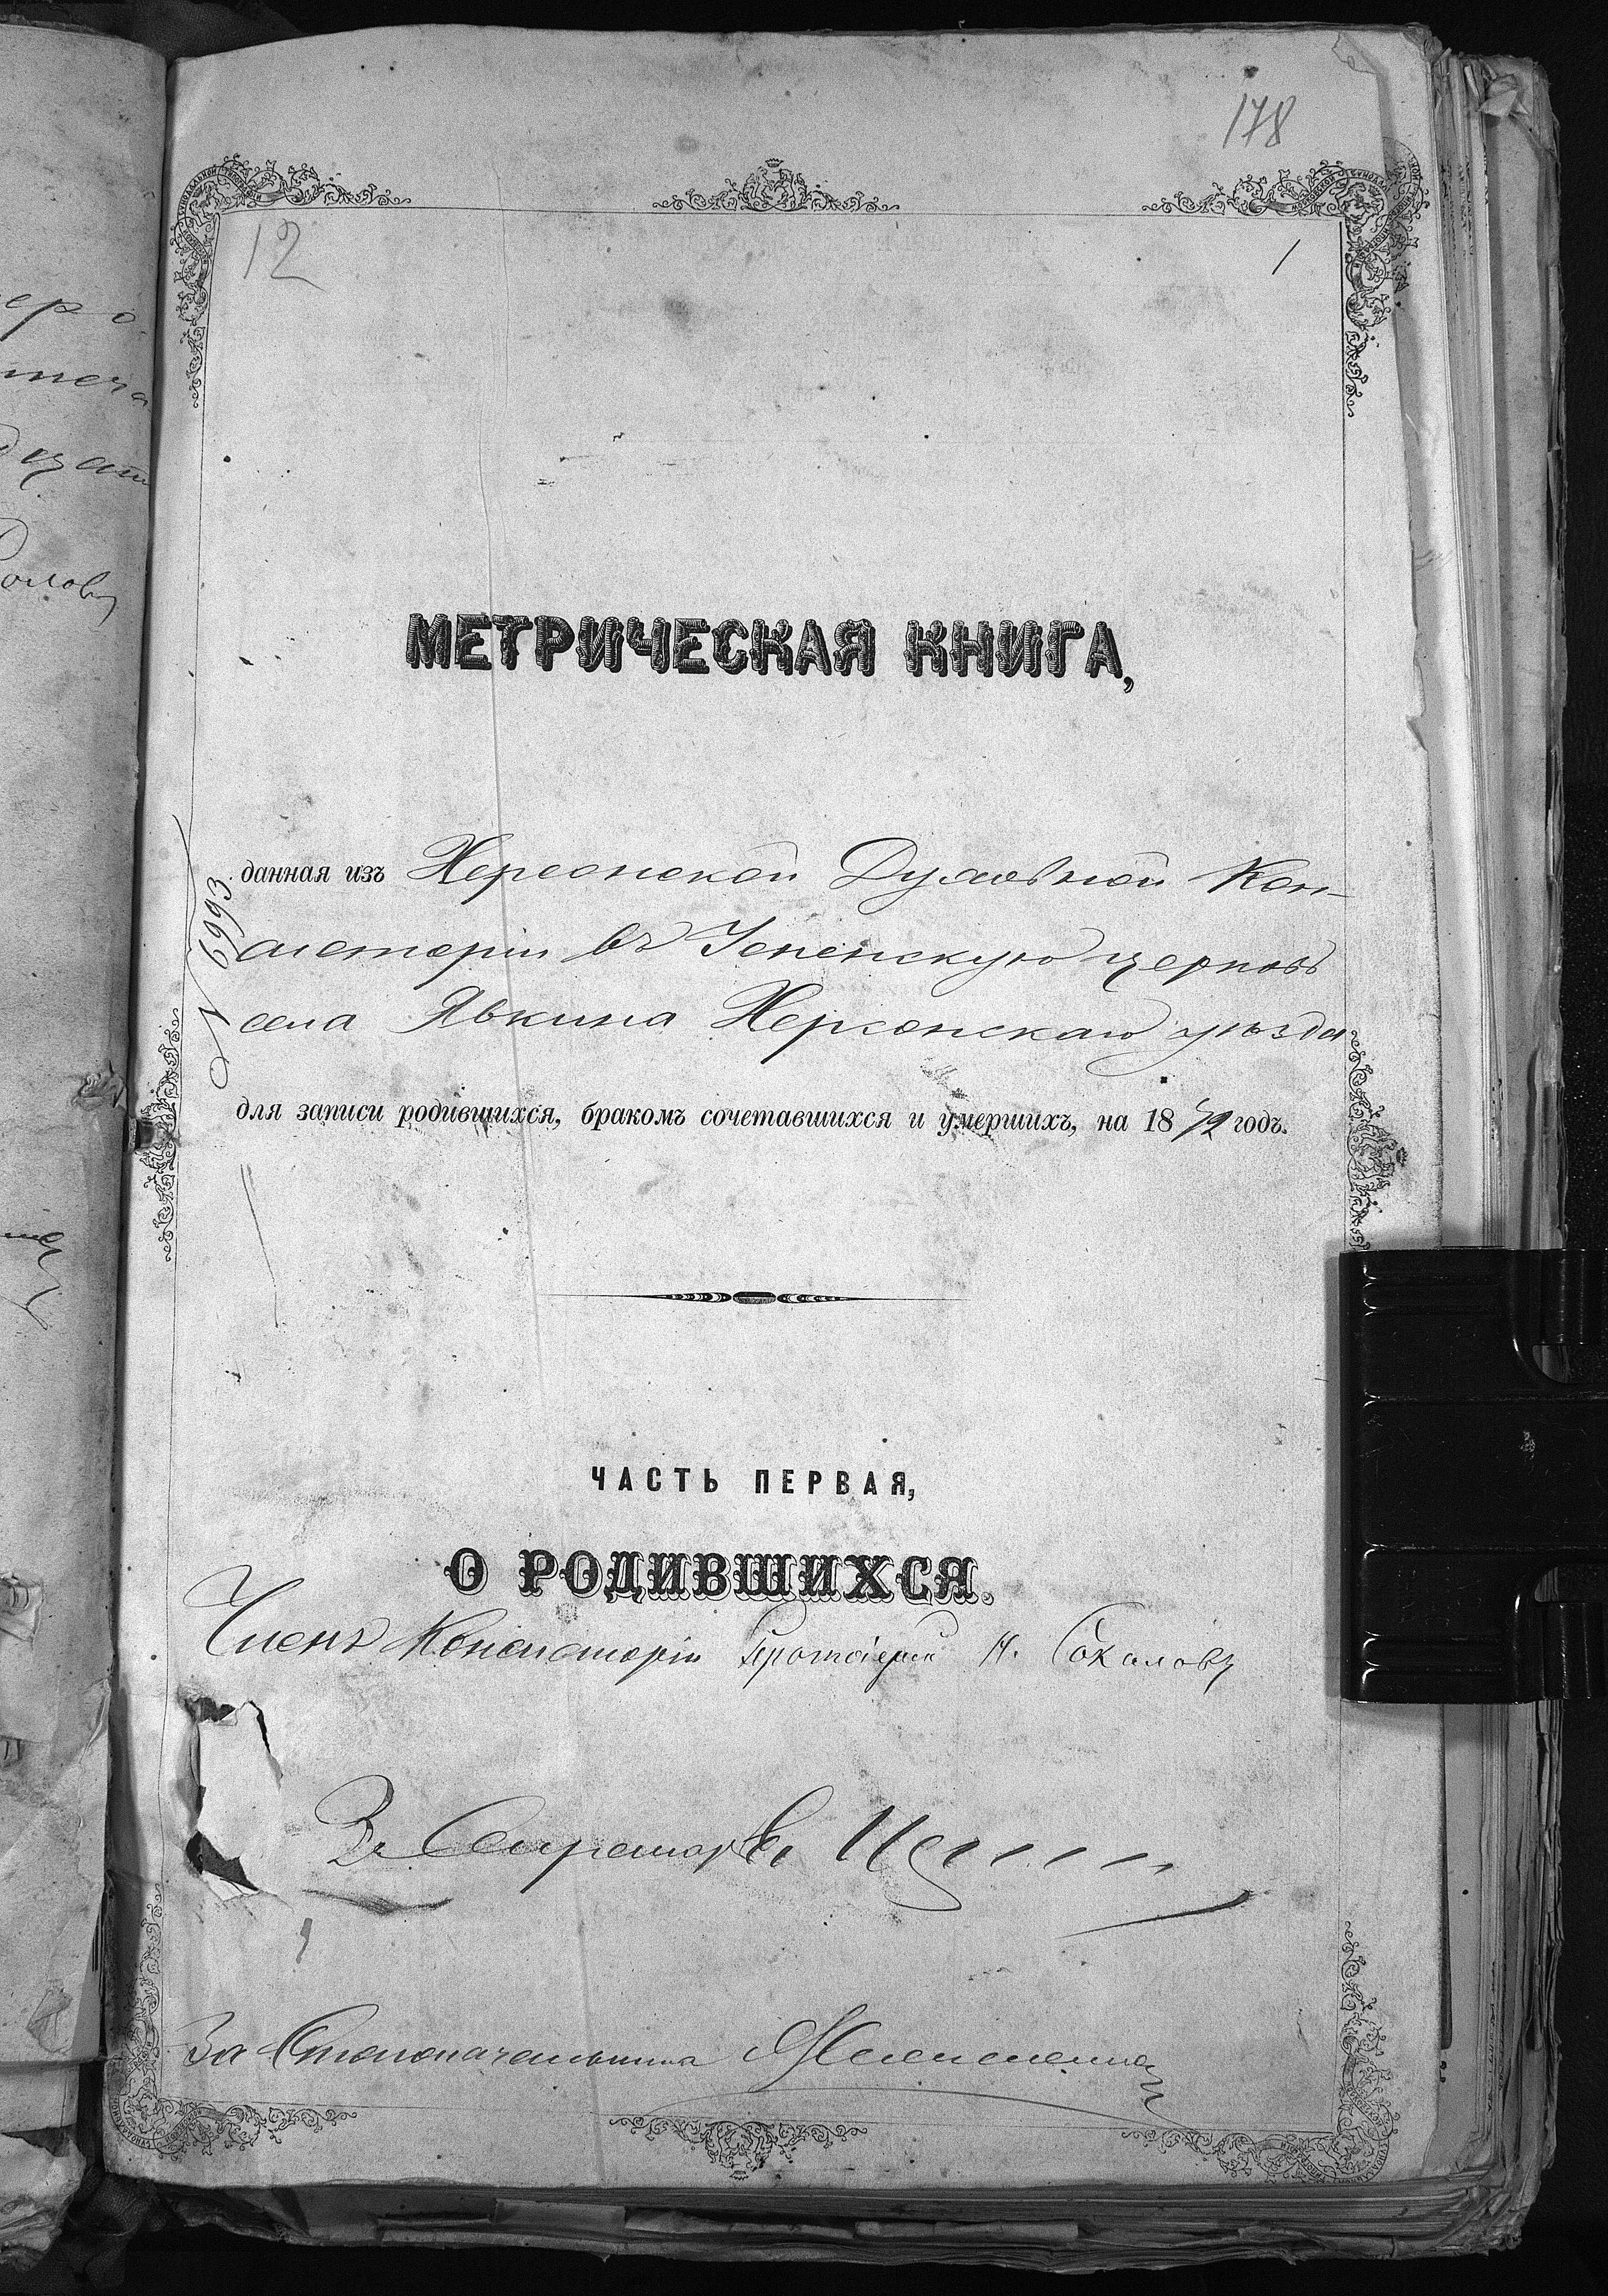 178
12
1
МЕТРИЧЕСКАЯ КНИГА,
данная изъ Херсонской Духовной Кон-
систоріи въ Успенскую церковь
села Явкина Херсонскаго уѣзда
N 6993
для записи родившихся, бракомъ сочетавшихся и умершихъ, на 1872 годъ.
ЧАСТЬ ПЕРВАЯ,
О РОДИВШИХСЯ.
Членъ Консисторіи Протоіерей Н. Соколовъ
За Секретаря
За Столоначальника